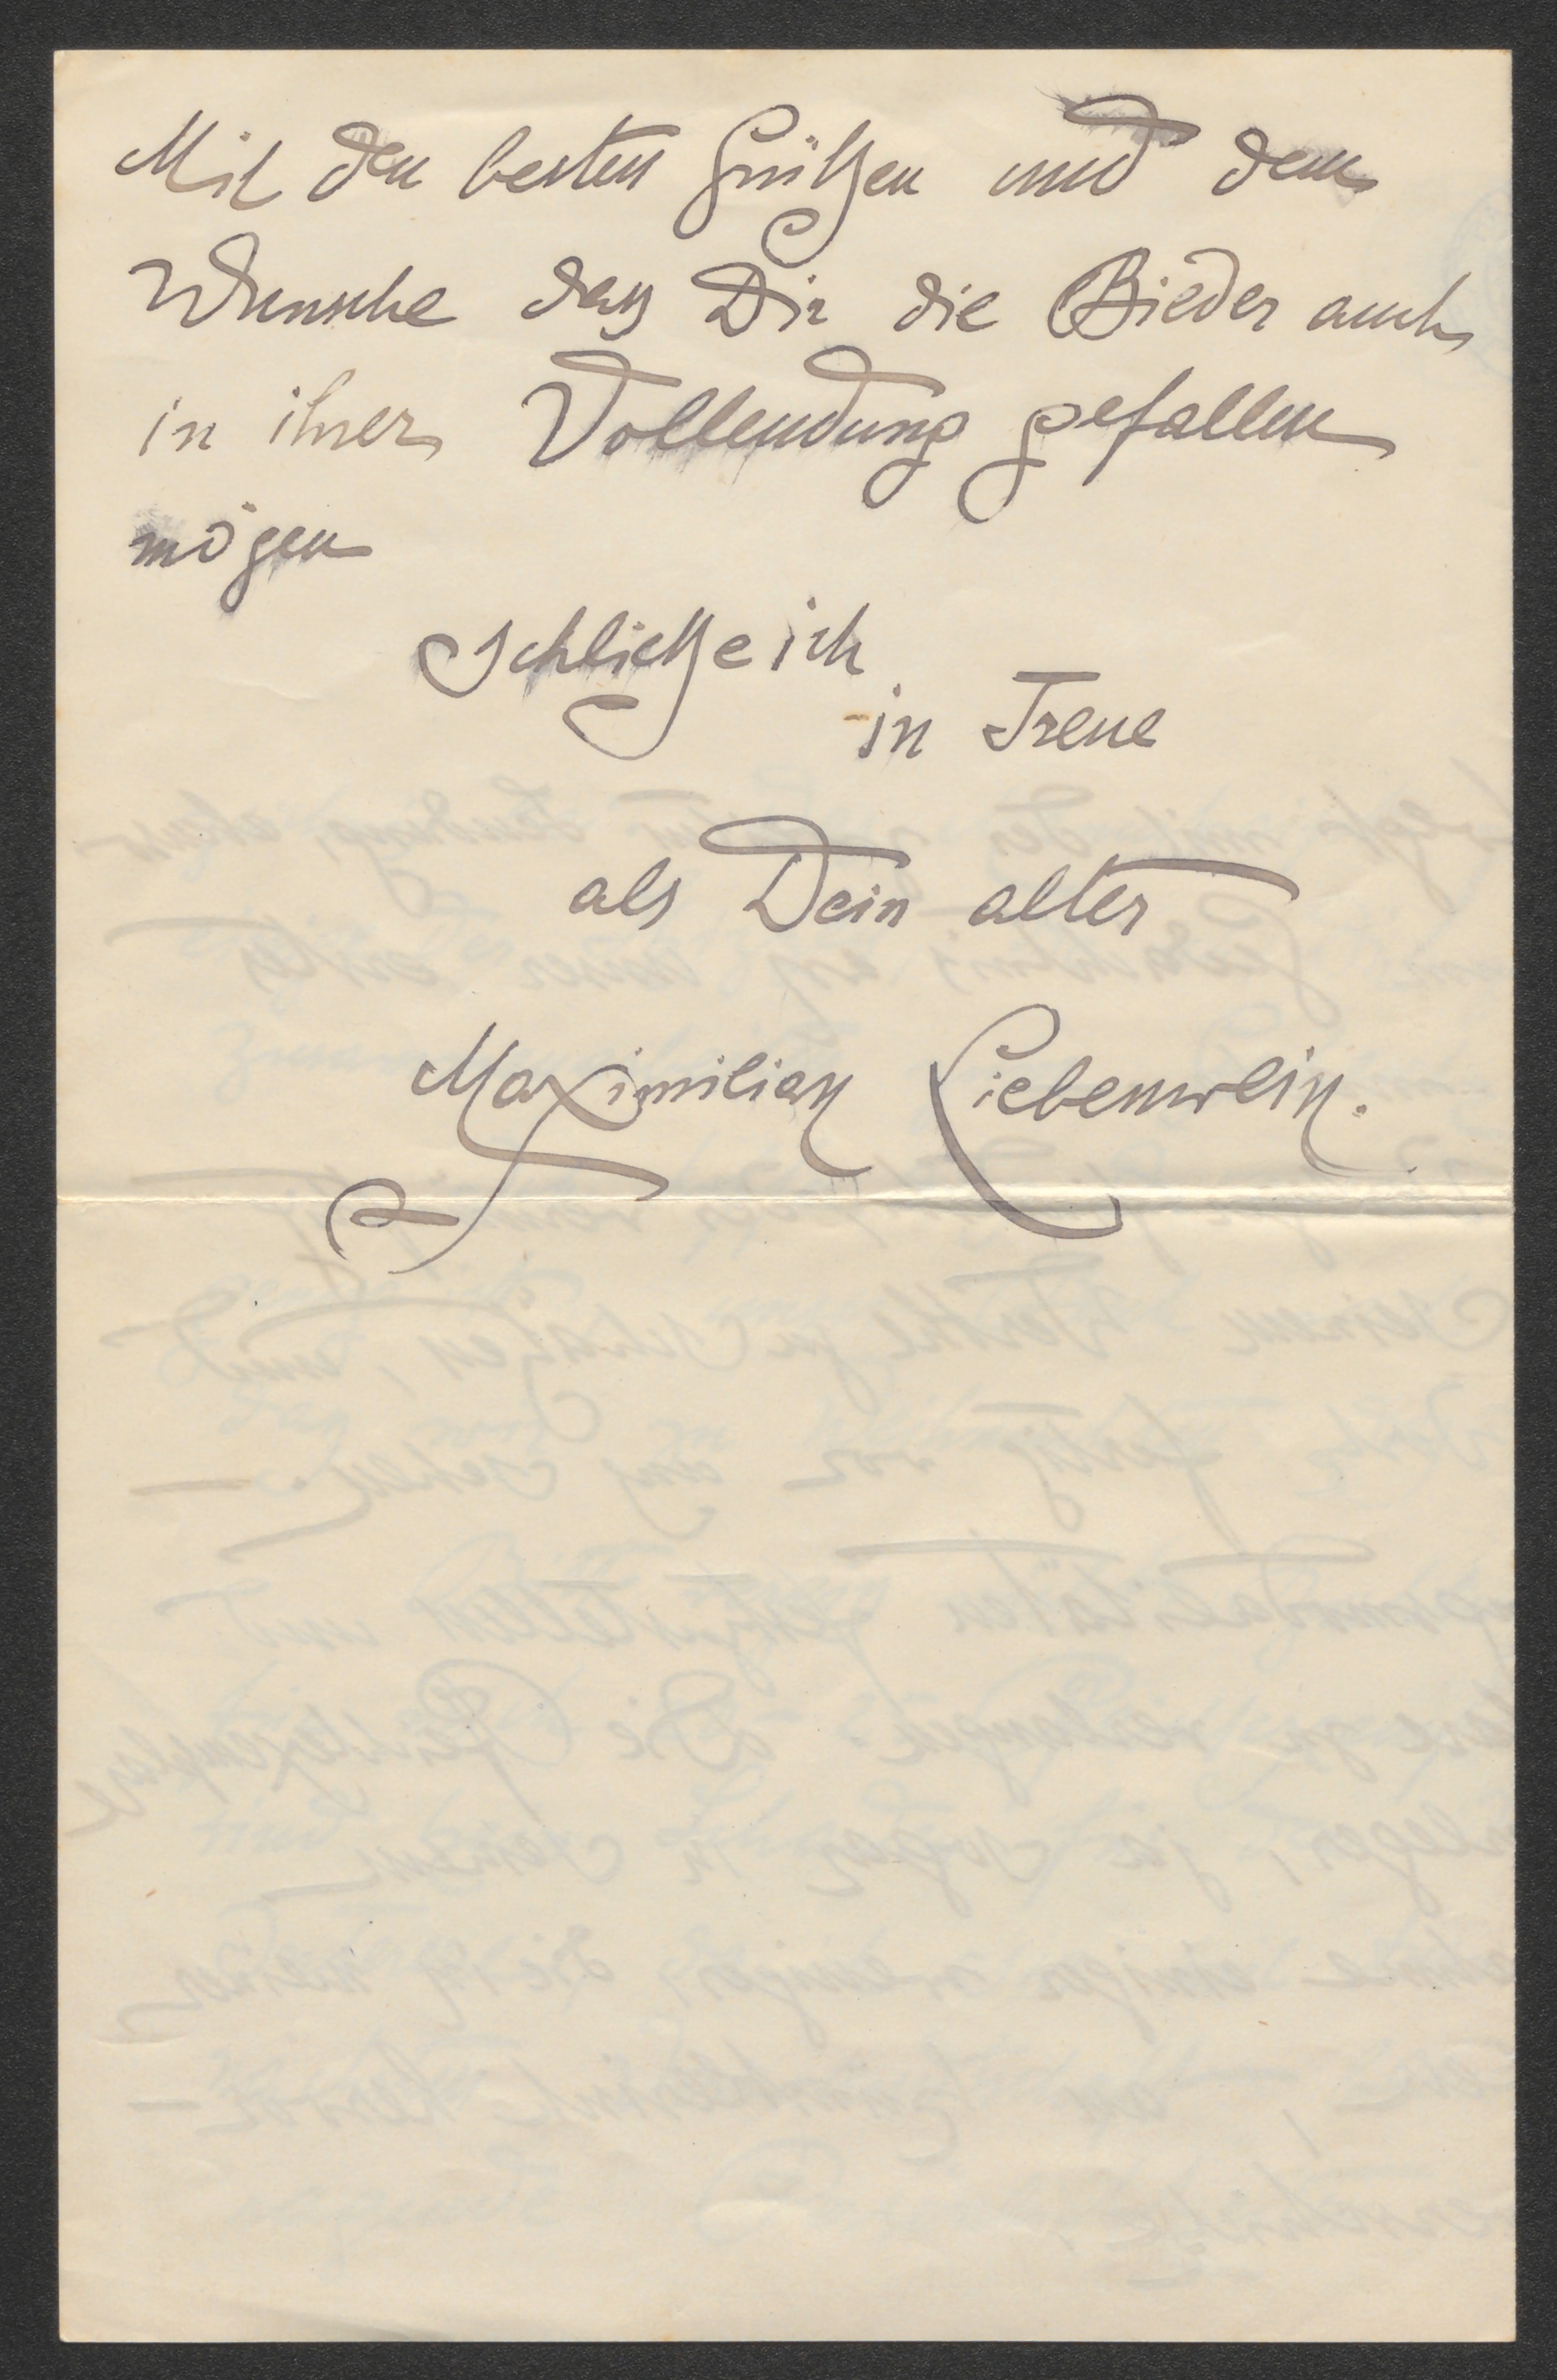 Mit den besten Grüßen und dem
Wunsche daß Dir die Bieder auch
in ihrer Vollendung gefallen
mögen
schließe ich
in Treue
als Dein alter
Maximilian Liebenwein.